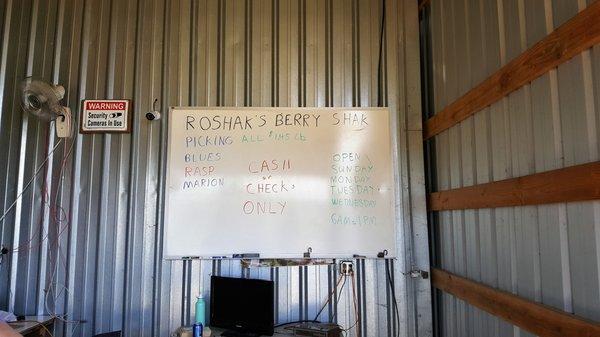 WARNING
Security Cameras In Use
ROSHAK'S BERRY SHAK
PICKING ALL $1.45 LB
BLUES
RASP
MARION
CASH
or
CHECK
ONLY
OPEN
SUNDAY
MONDAY
TUESDAY
WEDNESDAY
6AM-1PM